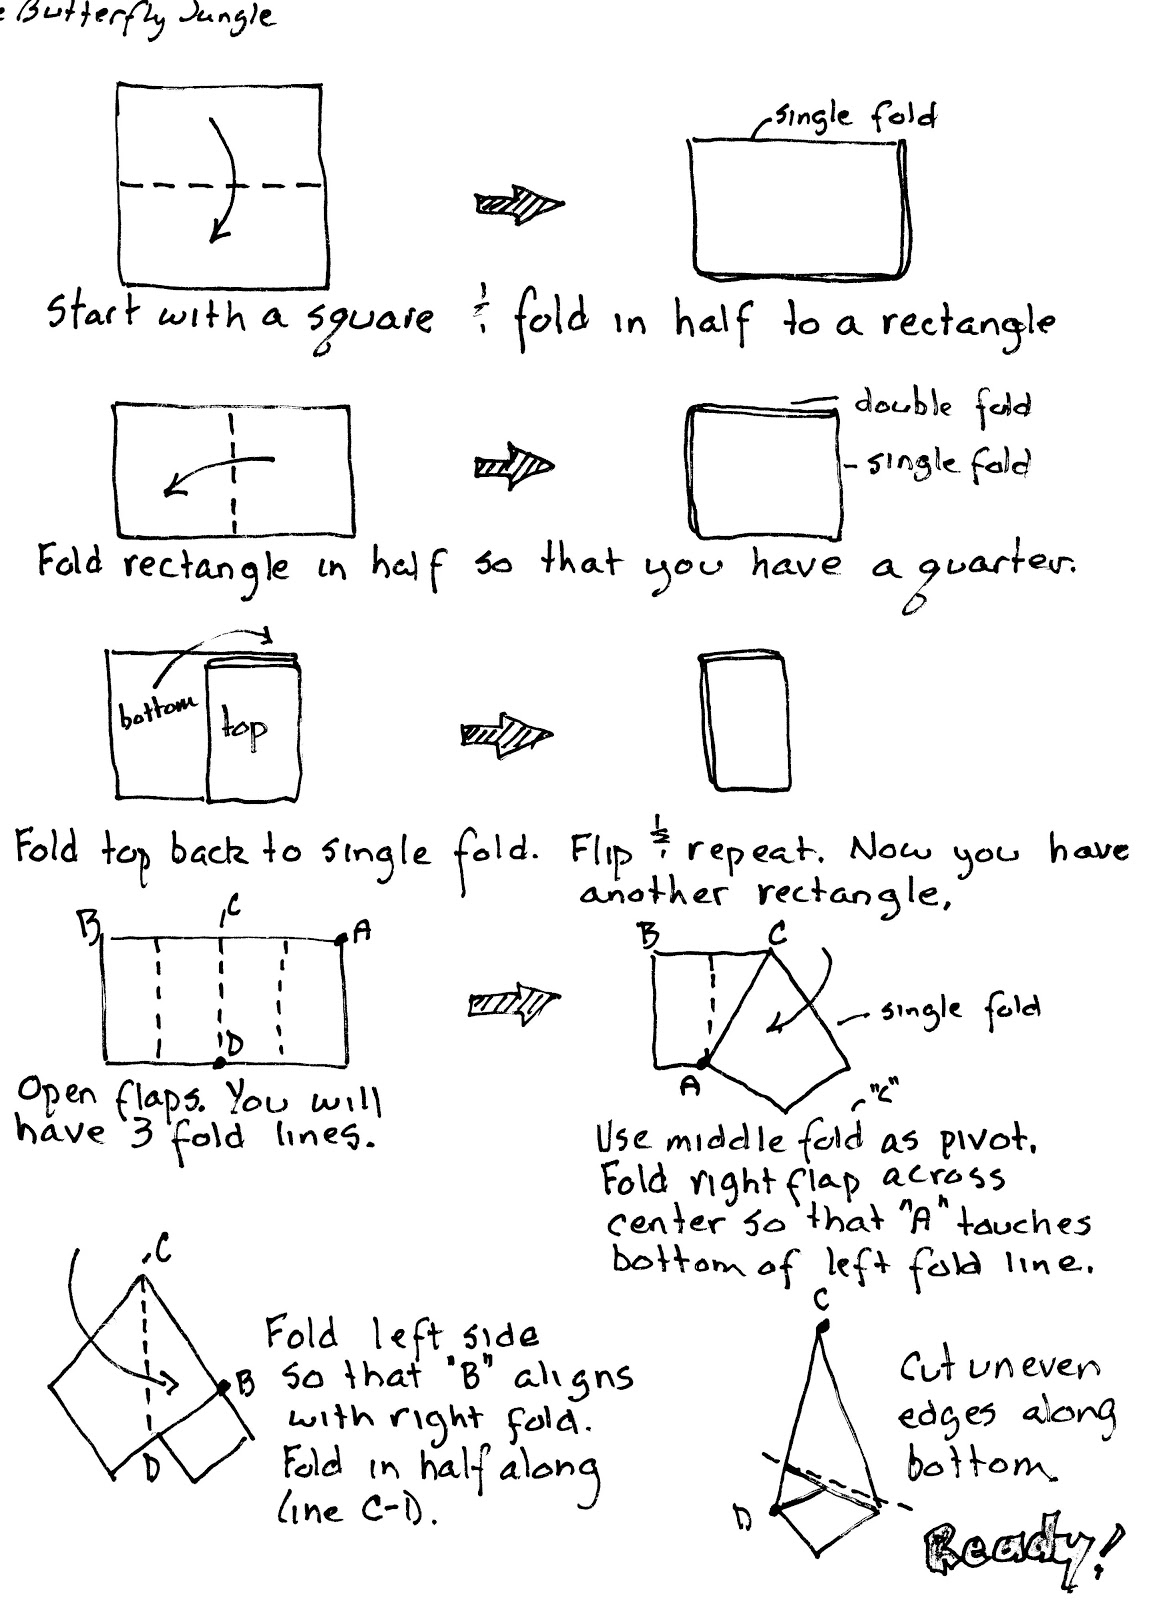 e Butterfly Jungle
single fold
Start with a square & fold in half to a rectangle
double fold
single fold
Fold rectangle in half so that you have a quarter.
bottom
top
Fold top back to single fold. Flip & repeat. Now you have
another rectangle.
B
C
A
D
Open flaps. You will
have 3 fold lines.
B
C
single fold
A
"C"
Use middle fold as pivot.
Fold right flap across
center so that "A" touches
bottom of left fold line.
C
B
D
Fold left side
so that "B" aligns
with right fold.
Fold in half along
line C-D.
C
D
Cut uneven
edges along
bottom.
Ready!